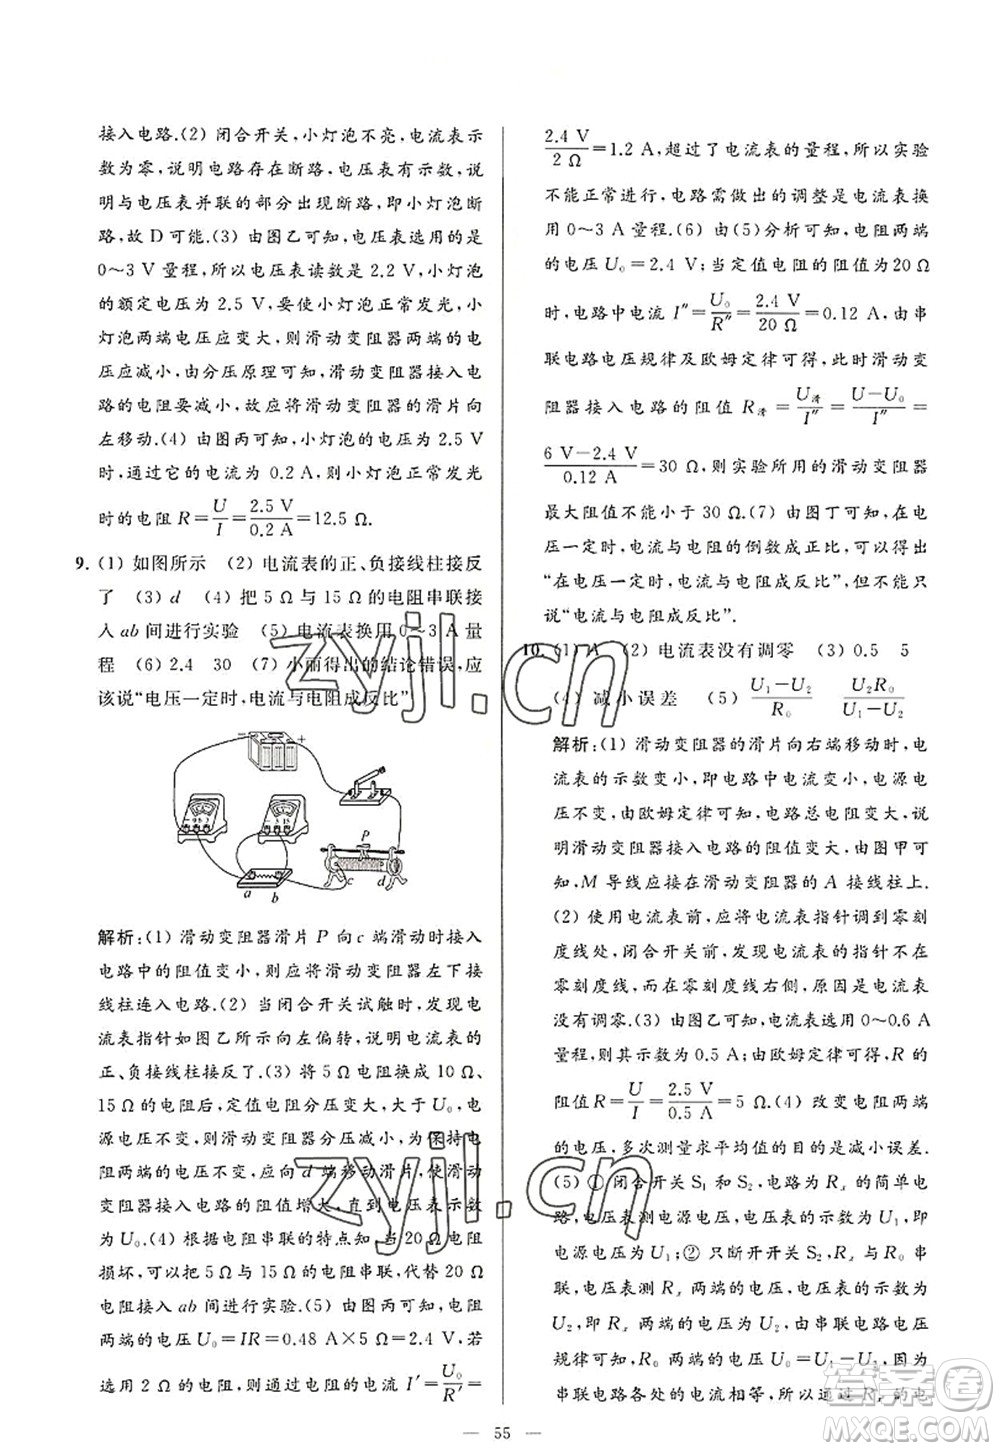 接入电路.(2) 闭合开关,小灯泡不亮,电流表示
数为零,说明电路存在断路,电压表有示数,说
明与电压表并联的部分出现断路,即小灯泡断
路,故 D 可能.(3) 由图乙可知,电压表选用的是
0～3 V 量程,所以电压表读数是 2.2 V,小灯泡
的额定电压为 2.5 V,要使小灯泡正常发光,小
灯泡两端电压应变大,则滑动变阻器两端的电
压应减小,由分压原理可知,滑动变阻器接入电
路的电阻要减小,故应将滑动变阻器的滑片向
左移动.(4) 由图丙可知,小灯泡的电压为 2.5 V
时,通过它的电流为 0.2 A,则小灯泡正常发光
时的电阻 R=U/I=2.5 V/0.2 A=12.5 Ω.
9. (1) 如图所示 (2) 电流表的正、负接线柱接反
了 (3) d (4) 把 5 Ω 与 15 Ω 的电阻串联接
入 ab 间进行实验 (5) 电流表换用 0～3 A 量
程 (6) 2.4 30 (7) 小丽得出的结论错误,应
该说“电压一定时,电流与电阻成反比”
− +
P
a b c d
解析:(1) 滑动变阻器滑片 P 向 c 端滑动时接入
电路中的阻值变小,则应将滑动变阻器左下接
线柱连入电路.(2) 当闭合开关试触时,发现电
流表指针如图乙所示向左偏转,说明电流表的
正、负接线柱接反了.(3) 将 5 Ω 换成 10 Ω、
15 Ω 的电阻后,定值电阻分压变大,大于 U₀,电
源电压不变,则滑动变阻器分压减小,为保持电
阻两端的电压不变,应向 d 端移动滑片,使滑动
变阻器接入电路的阻值增大,直到电压表示数
为 U₀.(4) 根据电阻串联的特点知,当 20 Ω 电阻
损坏,可以把 5 Ω 与 15 Ω 的电阻串联,代替 20 Ω
电阻接入 ab 间进行实验.(5) 由图丙可知,电阻
两端的电压 U₀=IR=0.48 A×5 Ω=2.4 V,若
选用 2 Ω 的电阻,则通过电阻的电流 I′=U₀/R′=
2.4 V/2 Ω=1.2 A,超过了电流表的量程,所以实验
不能正常进行,电路需做出的调整是电流表换
用 0～3 A 量程.(6) 由(5)分析可知,电阻两端
的电压 U₀=2.4 V;当定值电阻的阻值为20 Ω
时,电路中电流 I″=U₀/R″=2.4 V/20 Ω=0.12 A,由串
联电路电压规律及欧姆定律可得,此时滑动变
阻器接入电路的阻值 R滑=U滑/I″=(U−U₀)/I″=
(6 V−2.4 V)/0.12 A=30 Ω,则实验所用的滑动变阻器
最大阻值不能小于 30 Ω.(7) 由图丁可知,电压
一定时,电流与电阻的倒数成正比,可以得出
“在电压一定时,电流与电阻成反比”,但不能
只说“电流与电阻成反比”.
10. (1) A (2) 电流表没有调零 (3) 0.5 5
(4) 减小误差 (5) (U₁−U₂)/R₀ U₂R₀/(U₁−U₂)
解析:(1) 滑动变阻器的滑片向右端移动时,电
流表的示数变小,即电路中电流变小,电源电
压不变,由欧姆定律可知,电路总电阻变大,说
明滑动变阻器接入电路的阻值变大,由图甲可
知,M 导线应接在滑动变阻器的 A 接线柱上.
(2) 使用电流表前,应将电流表指针调到零刻
度线处,闭合开关前,发现电流表的指针不在
零刻度线处,在零刻度线右侧,原因是电流表
没有调零.(3) 由图乙可知,电流表选用 0～0.6 A
量程,则其示数为 0.5 A;由欧姆定律可知,R 的
阻值 R=U/I=2.5 V/0.5 A=5 Ω.(4) 改变电阻两端
的电压,多次测量求平均值的目的是减小误差.
(5) ① 闭合开关 S₁ 和 S₂,电路为 Rₓ 的简单电
路,电压表测电源电压,电压表的示数为 U₁,即
电源电压为 U₁;② 只断开开关 S₂,Rₓ 与 R₀ 串
联,电压表测 Rₓ 两端的电压,电压表的示数为
U₂,即 Rₓ 两端的电压为 U₂,由串联电路电压
规律可知,R₀ 两端的电压 U₀=U₁−U₂,因为
串联电路各处的电流相等,所以通过 Rₓ 的电
— 55 —
zyjl.cn
zyjl.cn
答案圈
MXQE.COM